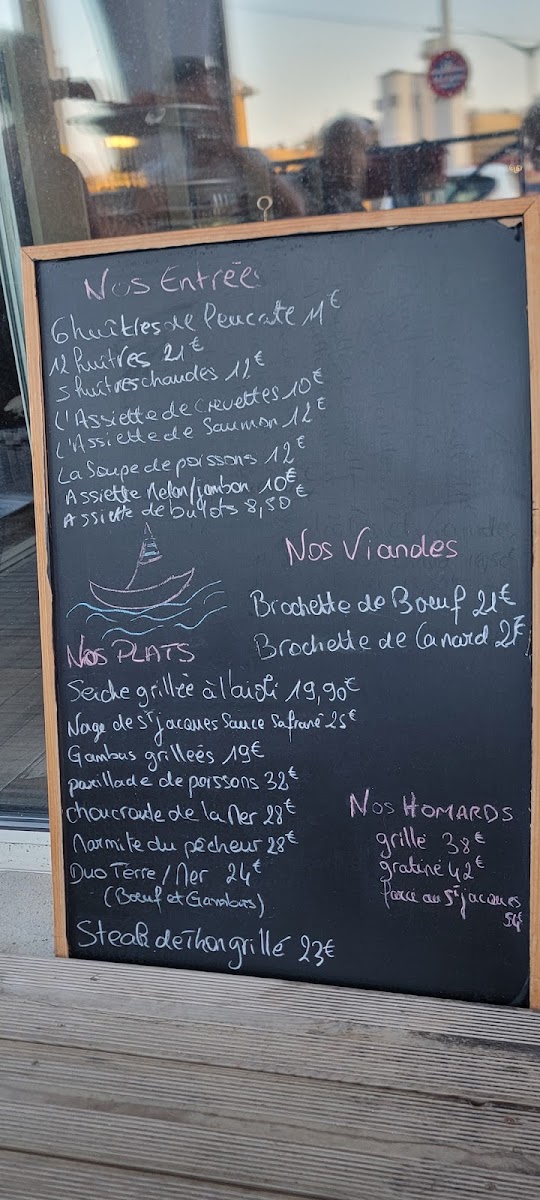 Nos Entrée
6 huîtres de Leucate 11€
12 huîtres 21€
5 huîtres chaudes 12€
L'Assiette de Crevettes 10€
L'Assiette de Saumon 12€
La Soupe de poissons 12€
Assiette Melon/jambon 10€
Assiette de bulots 8,50€
Nos Viandes
Brochette de Boeuf 21€
Brochette de Canard
Nos PLATS
Seiche grillée à l'aïoli 19,90€
Nage de St jacques Sauce Safrané 25€
Gambas grilleés 19€
parillade de poissons 32€
choucroute de la Mer 28€
Marmite du pêcheur 28€
Duo Terre/Mer 24€
(Boeuf et Gambas)
Steak de Thon grillé 23€
Nos HOMARDS
grillé 38€
gratiné 42€
farci au St jacques
54€